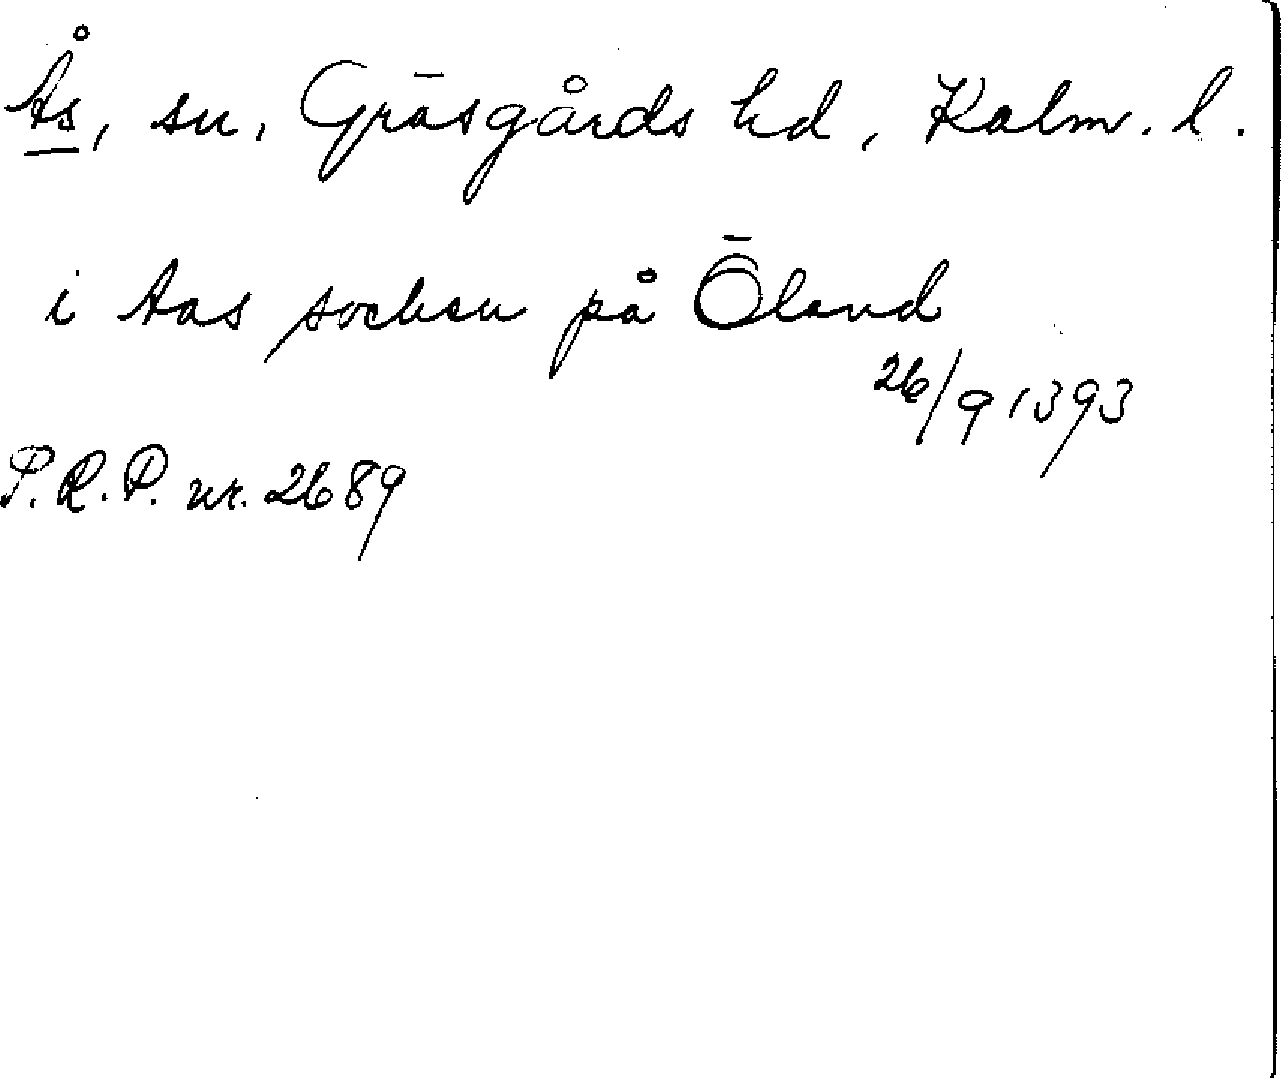 Ås, sn, Gräsgårds hd, Kalm. l.
i Aas sochen på Öland
26/9 1393
P.R.P. nr. 2689